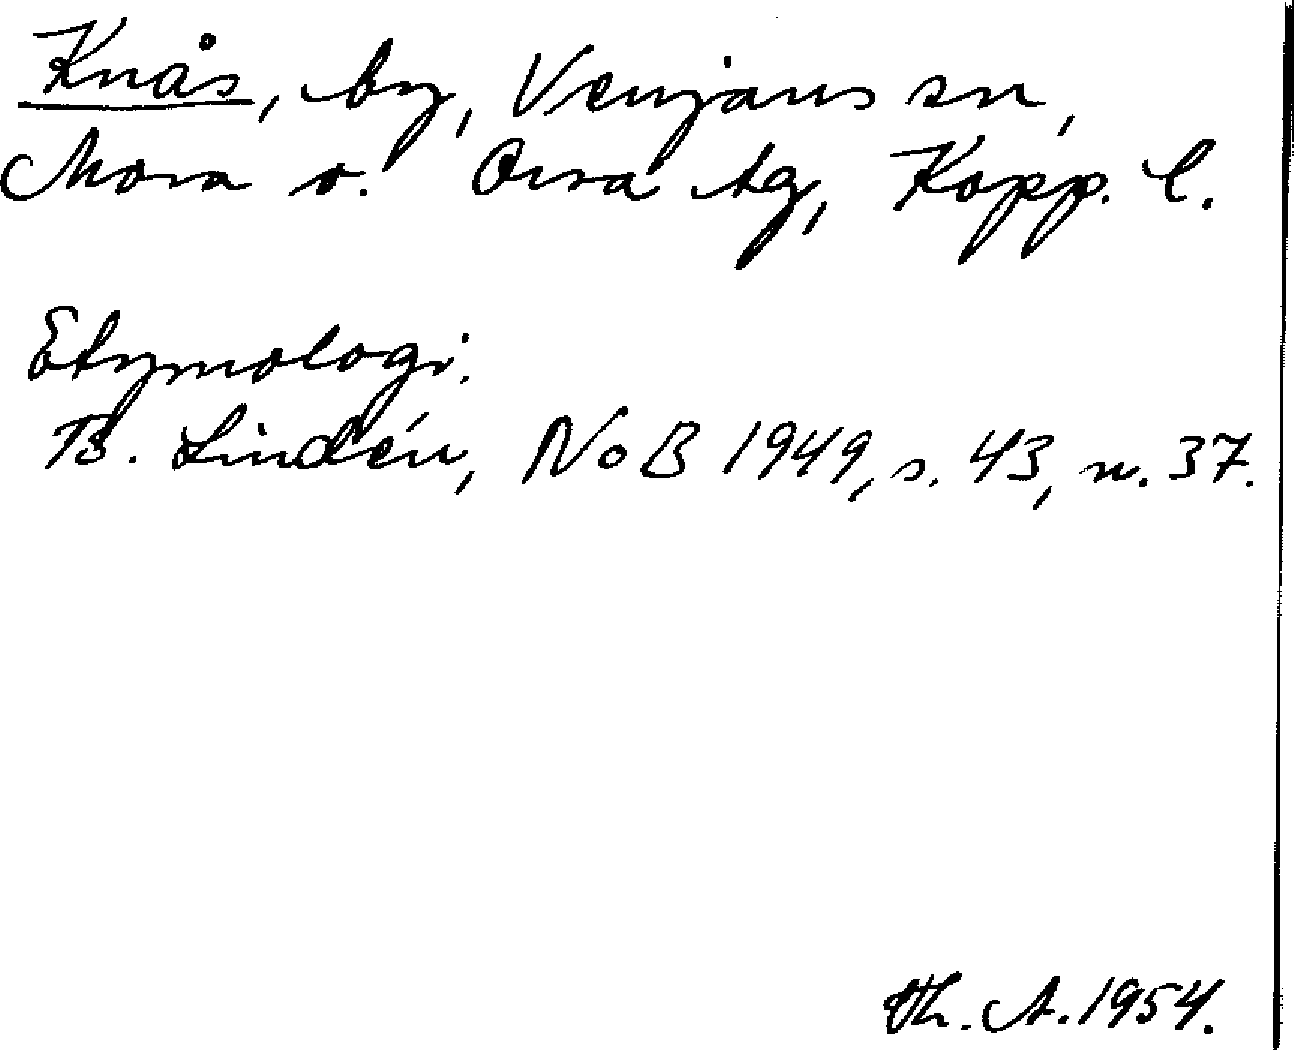 Knås, by, Venjans sn,
Mora o. Orsa tg, Kopp. l.
Etymologi:
B. Lindén, NoB 1949, s. 43, n. 37.
Th. A. 1954.